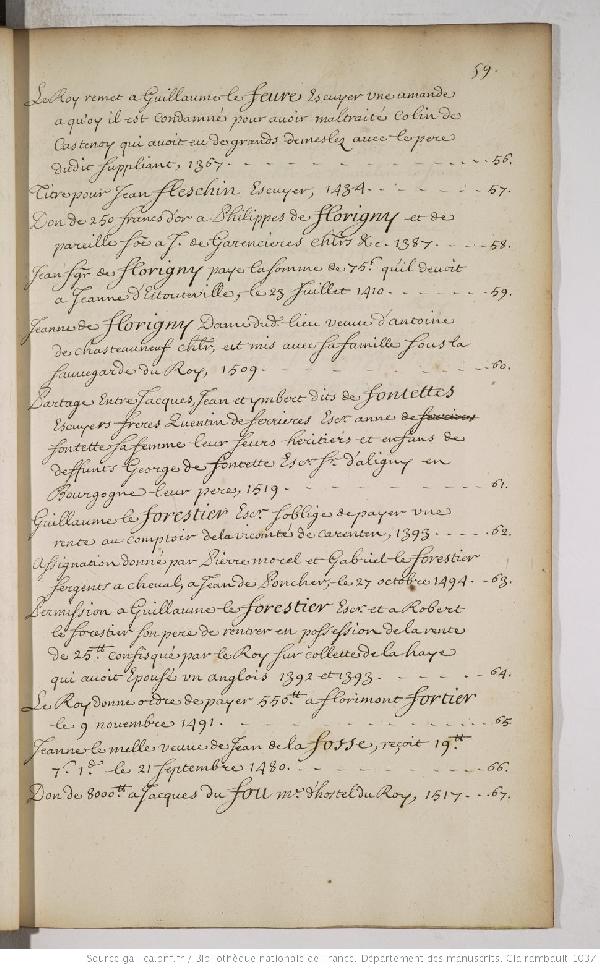 59.
Le Roy remet a Guillaume le feure Escuyer vne amande
a quoy il est condamné pour avoir maltraité Colin de
Castenoy qui avoit eu de grands demeslez avec le pere
dudit suppliant, 1367. - - - - - - - - - - - 56.
Titre pour Jean fleschin Escuyer, 1434. - - - - - - 57.
Don de 250 francs d'or a Philippes de florigny et de
pareille soe a J. de Garencieres chlrs &c. 1387. - - - - 58.
Jean sgr. de florigny paye la somme de 75s. qu'il devoit
a Jeanne d'Estouteville, le 23 Juillet 1410. - - - - - 59.
Jeanne de florigny Dame dud. lieu veuve d'antoine
de Chasteauneuf chlr, est mis avec sa famille sous la
sauvegarde du Roy, 1509. - - - - - - - - - 60.
Partage Entre Jacques, Jean et ymbert dits de fontettes
Escuyers freres Quentin de ferrieres Escr. anne de ferrieres
fontette sa femme leur seurs heritiers et enfans de
deffunts George de fontette Escr. sr. d'aligny en
Bourgogne leur pere, 1519. - - - - - - - - 61.
Guillaume le forestier Escr. soblige de payer vne
rente au comptoir de la viconté de Carenten, 1393. - - - - 62.
Assignation donné par Pierre morel et Gabriel le forestier
sergents a cheval, a Jean des Poncher, le 27 octobre 1494. - - 63.
Permission a Guillaume le forestier Escr. et a Robert
le forestier son pere de rentrer en possession de la rente
de 25tt confisqué par le Roy sur collette de la haye
qui avoit Epousé vn anglois 1392 et 1393. - - - - - 64.
Le Roy donne ordre de payer 550tt a florimont fortier
le 9 novembre 1491. - - - - - - - - - - - 65
Jeanne le melle veuve de Jean de la fosse, reçoit 19tt
7s. 1d. le 21 septembre 1480. - - - - - - - - 66.
Don de 8000tt a Jacques du fou mr. d'hostel du Roy, 1517 - - - 67.
Source gallica.bnf.fr / Bibliothèque nationale de France. Département des manuscrits. Clairembault 1037